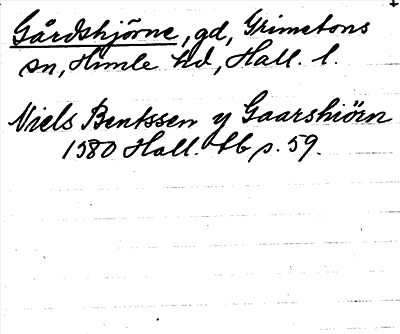 Gårdshjörne, gd, Grimetons
sn, Himle hd, Hall. l.
Niels Bentssen y Gaarshiörn
1580 Hall. tb s. 59.